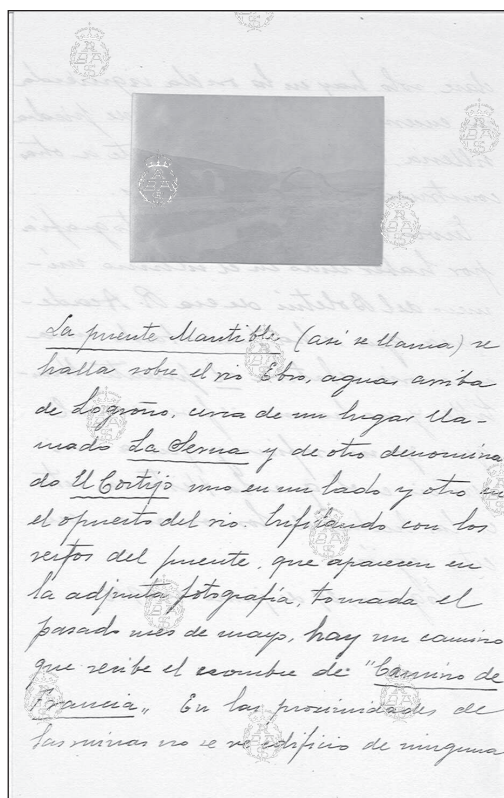 La puente Mantible (así se llama) se
halla sobre el río Ebro, aguas arriba
de Logroño, cerca de un lugar lla-
mado La Serna y de otro denomina
do El Cortijo uno en un lado y otro en
el opuesto del río. Enfilando con los
restos del puente, que aparecen en
la adjunta fotografía, tomada el
pasado mes de mayo, hay un camino
que recibe el nombre de "Camino de
Francia„ En las proximidades de
las ruinas no se ve edificio de ninguna